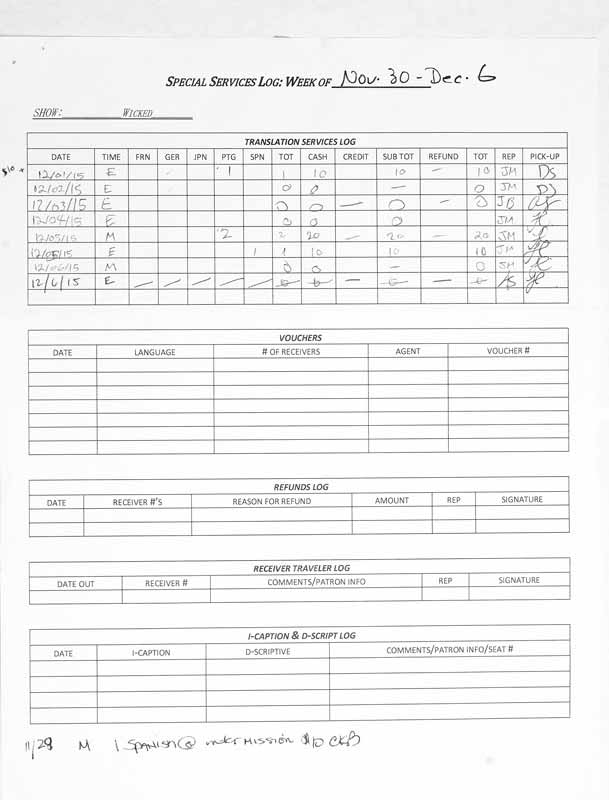 SPECIAL SERVICES LOG: WEEK OF Nov. 30 - Dec. 6
SHOW: WICKED
TRANSLATION SERVICES LOG
DATE TIME FRN GER JPN PTG SPN TOT CASH CREDIT SUB TOT REFUND TOT REP PICK-UP
$10 12/01/15 E 1 1 10 10 — 10 JM DS
12/02/15 E 0 0 — 0 JM DS
12/03/15 E 0 0 — 0 — 0 JB
12/04/15 E 0 0 0 JM
12/05/15 M 2 2 20 — 20 — 20 JM
12/05/15 E 1 1 10 10 10 JM
12/06/15 M 0 0 — 0 JM
12/6/15 E — — — — — 0 0 — 0 — 0 AS
VOUCHERS
DATE LANGUAGE # OF RECEIVERS AGENT VOUCHER #
REFUNDS LOG
DATE RECEIVER #'S REASON FOR REFUND AMOUNT REP SIGNATURE
RECEIVER TRAVELER LOG
DATE OUT RECEIVER # COMMENTS/PATRON INFO REP SIGNATURE
I-CAPTION & D-SCRIPT LOG
DATE I-CAPTION D-SCRIPTIVE COMMENTS/PATRON INFO/SEAT #
11/29 M 1 SPANISH @ intermission $10